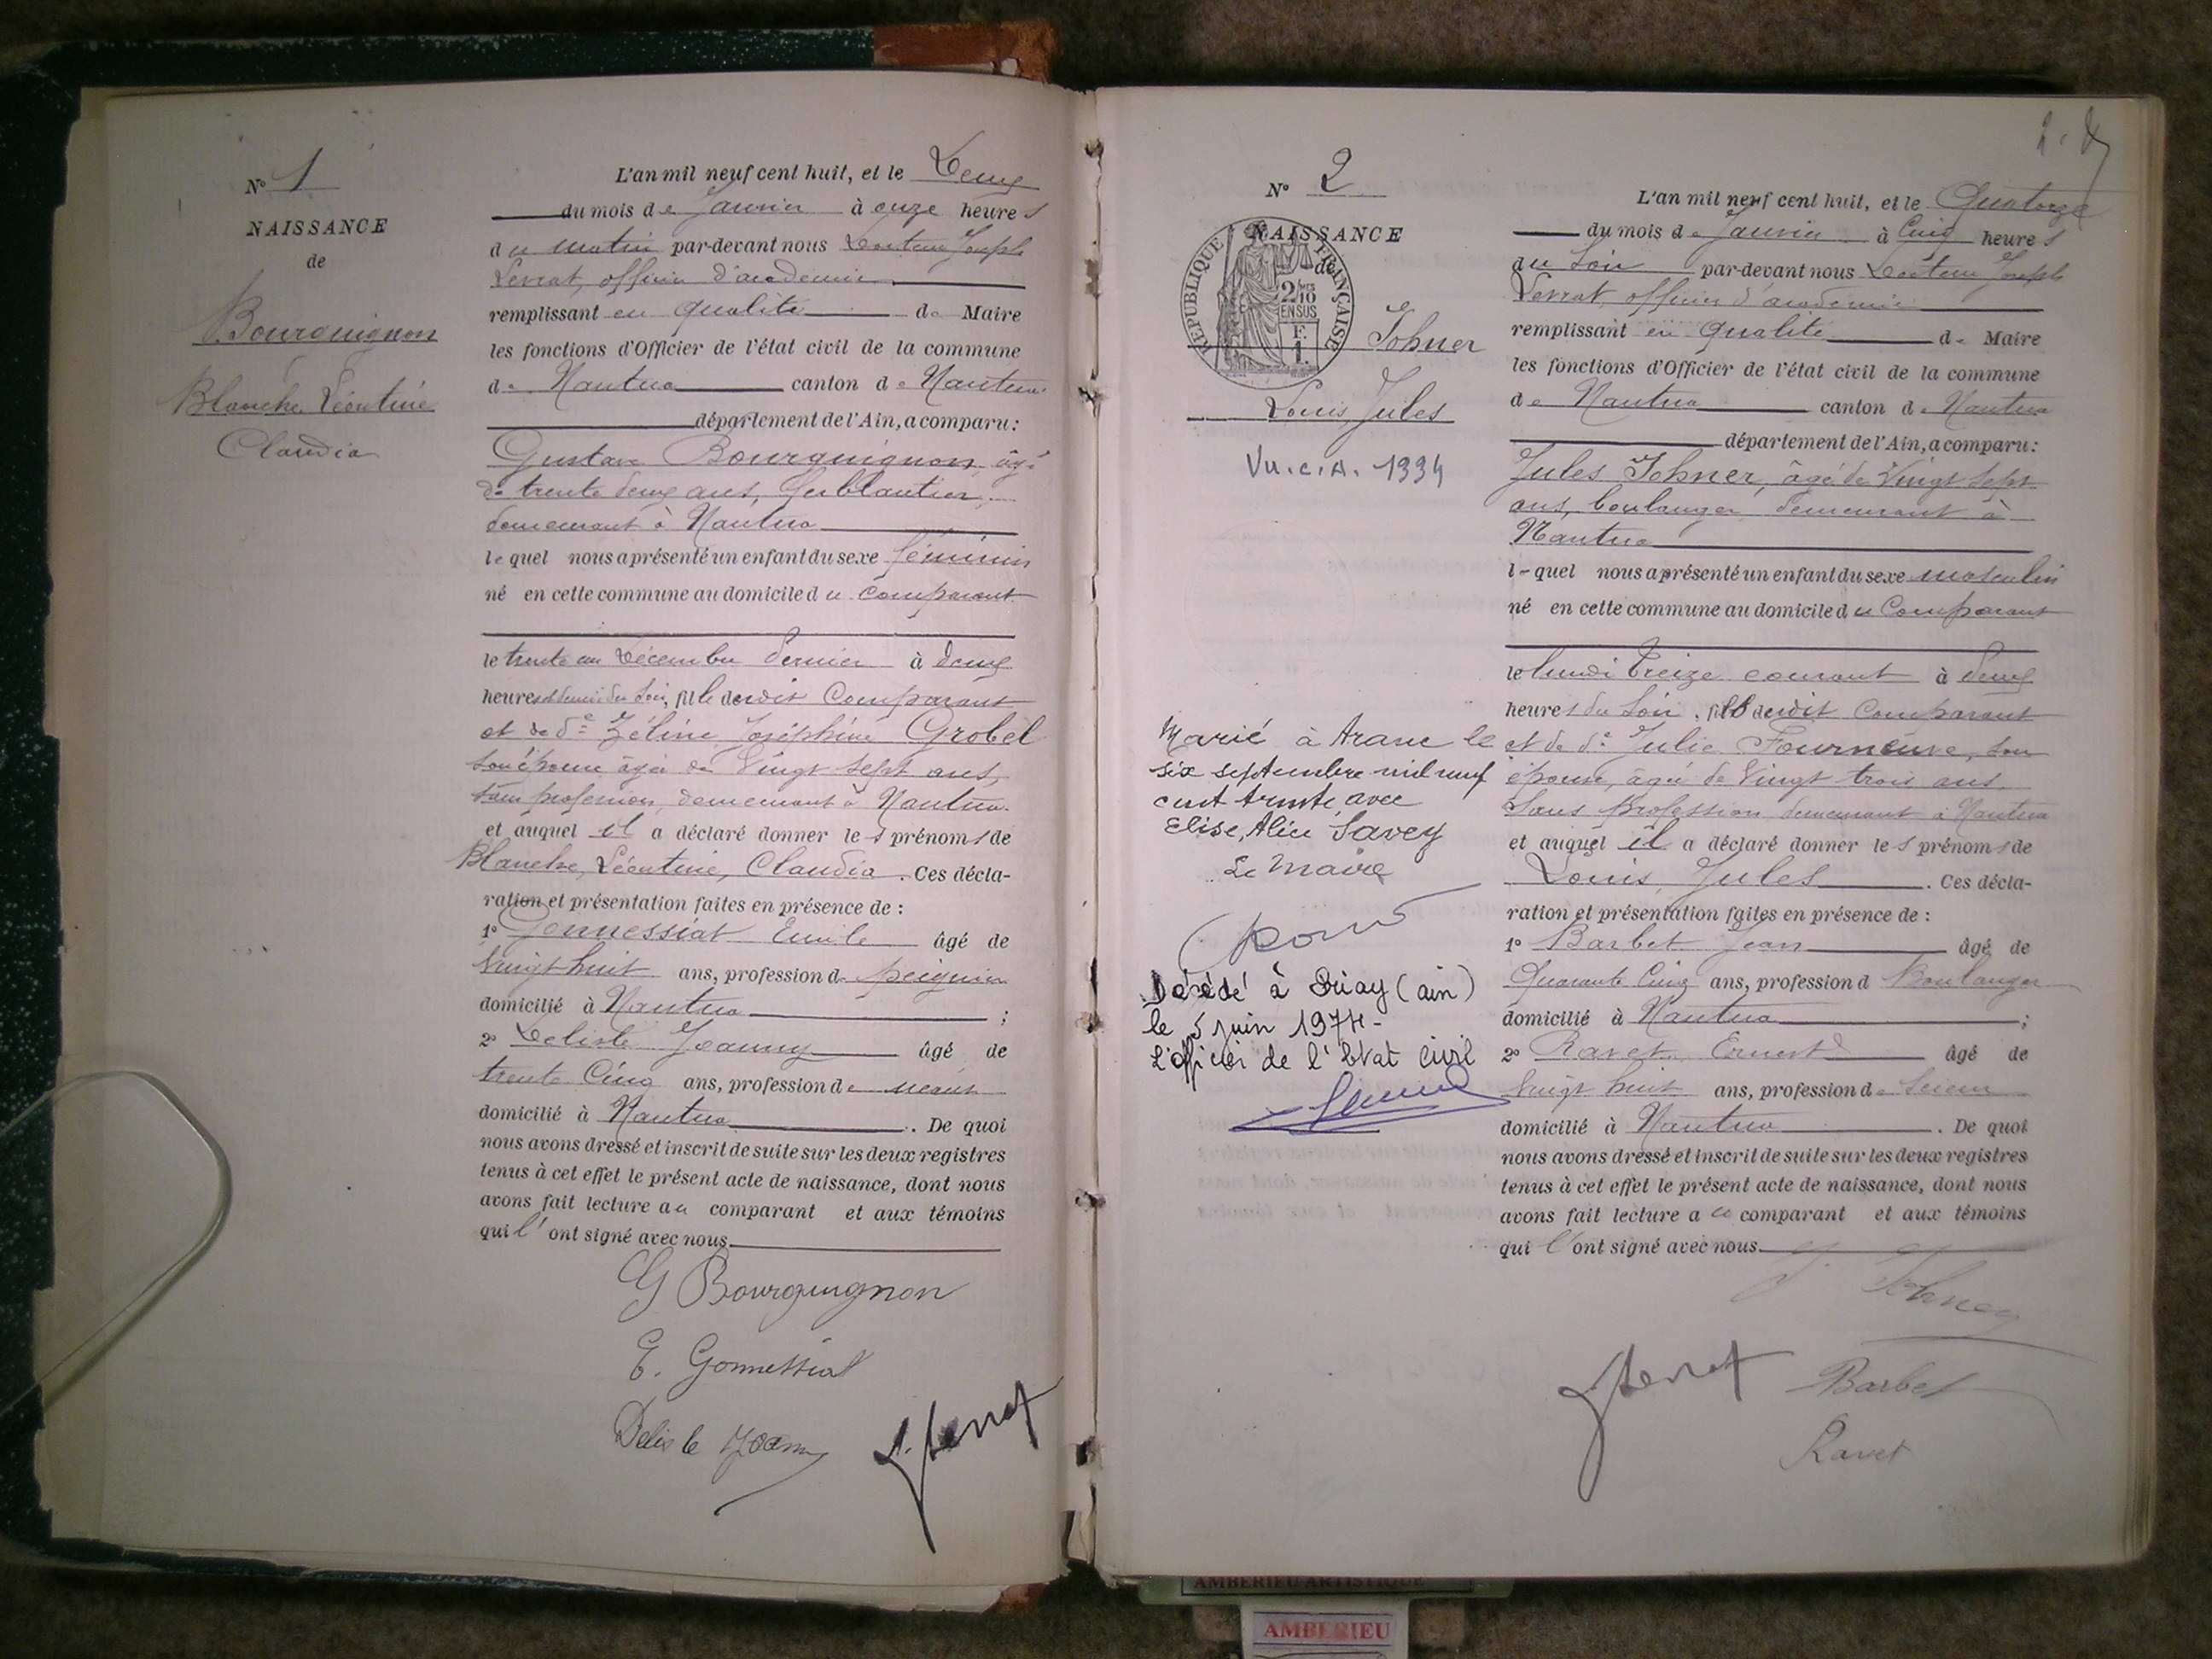 N° 1
NAISSANCE
de
Bourguignon
Blanche Léontine
Claudia
L'an mil neuf cent huit, et le Deux
du mois de Janvier à onze heures
du matin par-devant nous Docteur Joseph
Levrat, officier d'académie
remplissant en qualité de Maire
les fonctions d'Officier de l'état civil de la commune
de Nantua canton de Nantua
département de l'Ain, a comparu :
Gustave Bourguignon âgé
de trente deux ans, ferblantier
demeurant à Nantua
lequel nous a présenté un enfant du sexe féminin
né en cette commune au domicile du comparant
le trente un Décembre dernier à deux
heures et demie du soir, fille dudit Comparant
et de de Zéline Joséphine Grobel
son épouse âgée de Vingt sept ans,
sans profession, demeurant à Nantua
et auquel il a déclaré donner les prénoms de
Blanche, Léontine, Claudia. Ces décla-
ration et présentation faites en présence de :
1° Gonnessiat Emile âgé de
Vingt huit ans, profession de
domicilié à Nantua ;
2° Delisle Joanny âgé de
trente Cinq ans, profession de
domicilié à Nantua. De quoi
nous avons dressé et inscrit de suite sur les deux registres
tenus à cet effet le présent acte de naissance, dont nous
avons fait lecture au comparant et aux témoins
qui l'ont signé avec nous
G Bourguignon
E. Gonnessiat
Delisle Joanny
J. Levrat
2
N° 2
NAISSANCE
de
RÉPUBLIQUE FRANÇAISE
2/10 EN SUS
F.
1.
Johner
Louis Jules
Vu. c.A. 1934
Marié à Aranc le
six septembre mil neuf
cent trente avec
Elise, Alice Savey
Le Maire
Décédé à Briay (ain)
le 5 juin 1974-
L'officier de l'état civil
L'an mil neuf cent huit, et le Quatorze
du mois de Janvier à Cinq heures
du soir par-devant nous Docteur Joseph
Levrat, officier d'académie
remplissant en qualité de Maire
les fonctions d'Officier de l'état civil de la commune
de Nantua canton de Nantua
département de l'Ain, a comparu :
Jules Johner, âgé de Vingt sept
ans, boulanger demeurant à
Nantua
lequel nous a présenté un enfant du sexe masculin
né en cette commune au domicile du Comparant
le lundi treize courant à deux
heures du soir, fils dudit Comparant
et de de Julie Fourneuve, son
épouse, âgée de Vingt trois ans
Sans profession demeurant à Nantua
et auquel il a déclaré donner les prénoms de
Louis, Jules. Ces décla-
ration et présentation faites en présence de :
1° Barbet Jean âgé de
Quarante Cinq ans, profession d Boulanger
domicilié à Nantua ;
2° Ravet Ernest âgé de
Vingt huit ans, profession de Scieur
domicilié à Nantua. De quoi
nous avons dressé et inscrit de suite sur les deux registres
tenus à cet effet le présent acte de naissance, dont nous
avons fait lecture au comparant et aux témoins
qui l'ont signé avec nous
J. Johner
J. Levrat
Barbet
Ravet
AMBERIEU ARTISTIQUE
AMBERIEU